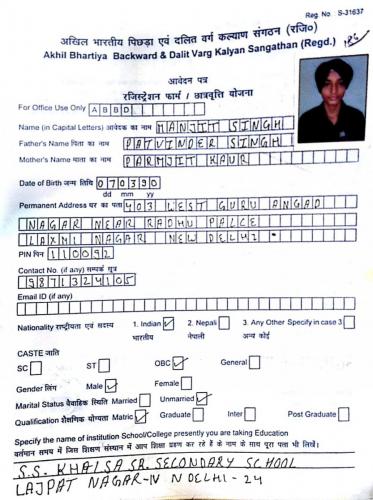 Reg. No. S-31637
अखिल भारतीय पिछड़ा एवं दलित वर्ग कल्याण संगठन (रजि०)
Akhil Bhartiya Backward & Dalit Varg Kalyan Sangathan (Regd.)
आवेदन पत्र
रजिस्ट्रेशन फार्म / छात्रवृत्ति योजना
For Office Use Only A B B D
Name (in Capital Letters) आवेदक का नाम MANJIT SINGH
Father's Name पिता का नाम PATVINDER SINGH
Mother's Name माता का नाम PARMJIT KAUR
Date of Birth जन्म तिथि 070390
dd mm yy
Permanent Address घर का पता 403 WEST GURU ANGAD
NAGAR NEAR RADHU PALCE
LAXMI NAGAR NEW DELHI
PIN पिन 110092
Contact No. (if any) सम्पर्क सूत्र
9871324105
Email ID (if any)
Nationality राष्ट्रीयता एवं सदस्य 1. Indian 2. Nepali 3. Any Other Specify in case 3
भारतीय नेपाली अन्य कोई
CASTE जाति
SC ST OBC General
Gender लिंग Male Female
Marital Status वैवाहिक स्थिति Married Unmarried
Qualification शैक्षणिक योग्यता Matric Graduate Inter Post Graduate
Specify the name of institution School/College presently you are taking Education
वर्तमान समय में जिस शिक्षण संस्थान में आप शिक्षा ग्रहण कर रहे हैं के नाम के साथ पूरा पता भी लिखें।
S.S. KHALSA SR. SECONDARY SCHOOL
LAJPAT NAGAR-IV N DELHI-24